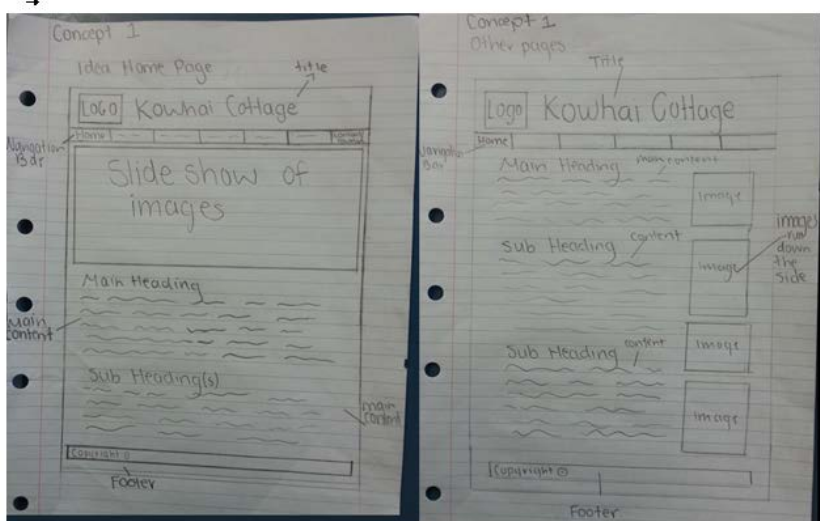 Concept 1
Idea Home Page
title
LOGO Kowhai Cottage
Home
Navigation
Bar
Slide show of
images
Main Heading
Main
content
Sub Heading(s)
main
content
Copyright ©
Footer
Concept 1
Other pages
Title
Logo Kowhai Cottage
Home
Bar
Main Heading
main content
Image
Sub Heading
content
image
images
run
down
the
side
Sub Heading
content
Image
image
Copyright ©
Footer